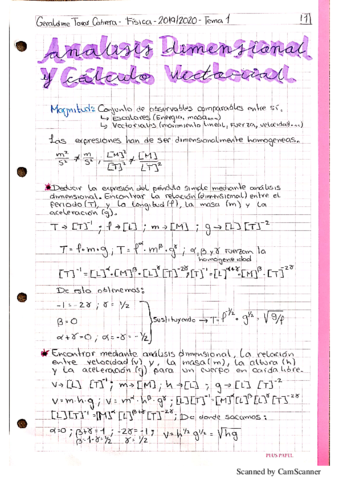 Geraldine Toros Cabrera - Física - 2019/2020 - Tema 1
Analisis Dimensional
Y Cálculo Vectorial
Magnitud: Conjunto de observables comparables entre sí.
↳ Escalares (Energía, masa...)
↳ Vectoriales (movimiento lineal, fuerza, velocidad...)
Las expresiones han de ser dimensionalmente homogeneas.
Deducir la expresión del péndulo simple mediante analisis
dimensional. Encontrar la relación (dimensional) entre el
periodo (T), y la longitud (l), la masa (m) y la
aceleración (g).
T → [T]⁻¹ ; l → [L] ; m → [M] ; g → [L][T]⁻²
T = l·m·g ; T = l^α·m^β·g^γ ; α, β, γ fuerzan la
homogeneidad
[T]⁻¹ = [L]^α·[M]^β·[L]^γ [T]^-2γ ; [T]⁻¹ = [L]^α+γ·[M]^β·[T]^-2γ
De esto obtenemos:
-1 = -2γ ; γ = 1/2
β = 0
α + γ = 0 ; α = -γ = -1/2
Sustituyendo → T = l^-1/2 · g^1/2 = √g/l
Encontrar mediante analisis dimensional, la relación
entre velocidad (v) y, la masa (m), la altura (h)
y la aceleración (g) para un cuerpo en caida libre.
v → [L] [T]⁻¹ ; m → [M] ; h → [L] ; g → [L] [T]⁻²
v = m·h·g ; v = m^α·h^β·g^γ ; [L][T]⁻¹ = [M]^α [L]^β [L]^γ [T]^-2γ
[L][T]⁻¹ = [M]^α [L]^β+γ [T]^-2γ ; De donde sacamos:
α = 0 ; β + γ = 1 ; -2γ = -1 ;
β = 1 - γ = 1/2 γ = 1/2
v = h^1/2 g^1/2 = √hg
Scanned by CamScanner